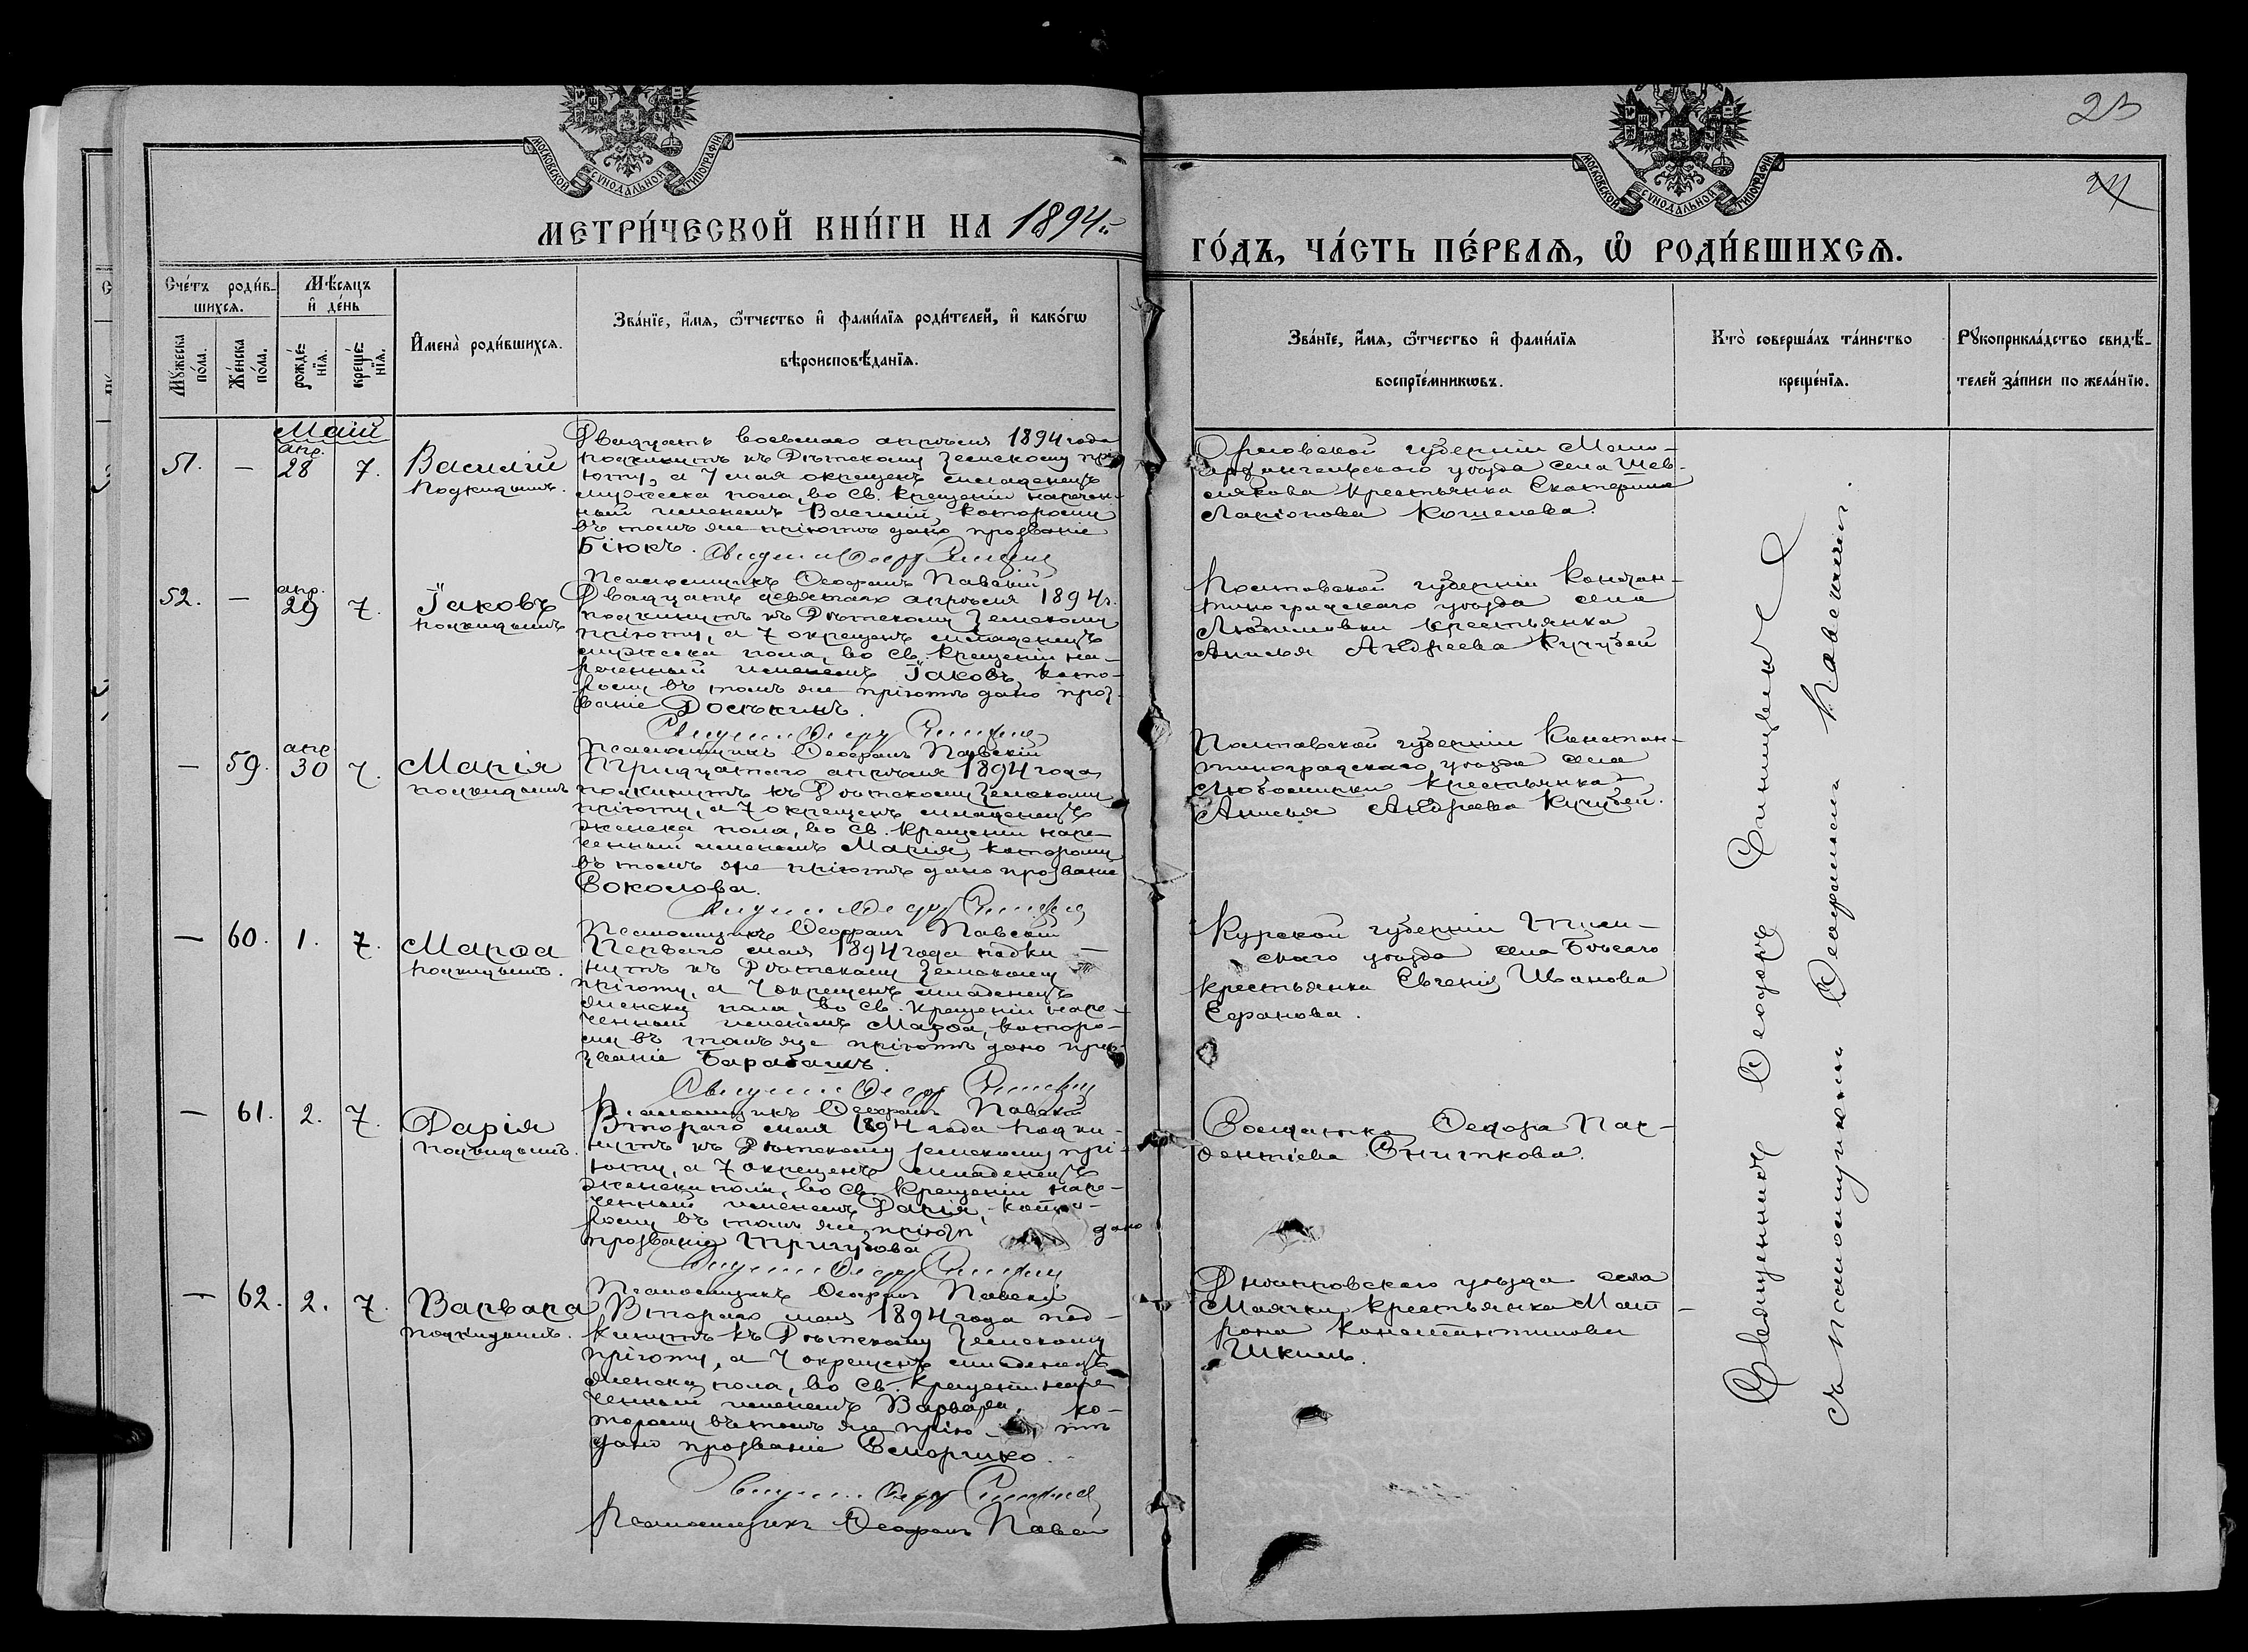 23
24
МОСКОВСКОЙ СѴНОДАЛЬНОЙ ТИПОГРАФІИ
МОСКОВСКОЙ СѴНОДАЛЬНОЙ ТИПОГРАФІИ
МЕТРИ́ЧЕСКОЙ КНИ́ГИ НА 1894
ГО́ДЪ, ЧА́СТЬ ПЕ́РВАѦ, Ѡ҆ РОДИ́ВШИХСѦ.
Сче́тъ роди́в-
шихсѧ.
Мꙋ́жеска по́ла.
Же́нска по́ла.
Мѣ́сѧцъ
и҆ де́нь
рожде́-нїѧ.
креще́-нїѧ.
И҆мена̀ роди́вшихсѧ.
Зва́нїе, и҆́мѧ, ѻ҆́тчество и҆ фами́лїѧ роди́телей, и҆ како́гѡ
вѣроисповѣ́данїѧ.
Зва́нїе, и҆́мѧ, ѻ҆́тчество и҆ фами́лїѧ
воспрїе́мникѡвъ.
Кто̀ соверша́лъ та́инство
креще́нїѧ.
Рꙋкоприкла́дство свидѣ́-
телей за́писи по жела́нїю.
Маій
51. — апр. 28 7.
Василій
подкидышъ.
Двадцать восьмаго апрѣля 1894 года
подкинутъ къ Дѣтскому Земскому прі-
юту, а 7 мая окрещенъ младенецъ
мужеска пола, во св. крещеніи наречен-
ный именемъ Василій, которому
въ томъ же пріютѣ дано прозваніе
Бѣюкъ.
Псаломщикъ Ѳеофанъ Павскій
Орловской губерніи Мало-
архангельского уѣзда села
крестьянка Екатерина
Ларіонова Кошелева.
52. — апр. 29 7.
Іаковъ
подкидышъ
Двадцать девятаго апрѣля 1894 г.
подкинутъ къ Дѣтскому Земскому
пріюту, а 7 окрещенъ младенецъ
мужеска пола, во св. крещеніи на-
реченный именемъ Іаковъ, кото-
рому въ томъ же пріютѣ дано проз-
ваніе
Псаломщикъ Ѳеофанъ Павскій
Полтавской губерніи Констан-
тиноградскаго уѣзда села
крестьянка
Анисья Андреева Кучубей
— 59. апр. 30 7.
Марія
подкидышъ
Тридцатаго апрѣля 1894 года
подкинутъ къ Дѣтскому Земскому
пріюту, а 7 окрещенъ младенецъ
женска пола, во св. крещеніи наре-
ченный именемъ Марія, которому
въ томъ же пріютѣ дано прозваніе
Соколова.
Псаломщикъ Ѳеофанъ Павскій
Полтавской губерніи Констан-
тиноградскаго уѣзда села
крестьянка
Анисья Андреева Кучубей.
— 60. 1. 7.
Марѳа
подкидышъ.
Перваго мая 1894 года подки-
нутъ къ Дѣтскому Земскому
пріюту, а 7 окрещенъ младенецъ
женска пола, во св. крещеніи наре-
ченный именемъ Марѳа, которо-
му въ томъ же пріютѣ дано про-
званіе Барабашъ.
Псаломщикъ Ѳеофанъ Павскій
Курской губерніи Тим-
скаго уѣзда села
крестьянка Евгенія Иванова
— 61. 2. 7.
Дарія
подкидышъ.
Втораго мая 1894 года подки-
нутъ къ Дѣтскому Земскому прі-
юту, а 7 окрещенъ младенецъ
женска пола, во св. крещеніи наре-
ченный именемъ Дарія, кото-
рому въ томъ же пріютѣ дано
прозваніе Тригубова
Псаломщикъ Ѳеофанъ Павскій
Солдатка Ѳедора
— 62. 2. 7.
Варвара
подкидышъ.
Втораго мая 1894 года под-
кинутъ къ Дѣтскому Земскому
пріюту, а 7 окрещенъ младенецъ
женска пола, во св. крещеніи наре-
ченный именемъ Варвара, ко-
торому въ томъ же пріютѣ
дано прозваніе
Псаломщикъ Ѳеофанъ Павскій
Днѣпровскаго уѣзда села
Маячки крестьянка Мат-
рона Константинова
Шкиль.
Священникъ Ѳеодоръ Синицынъ
съ псаломщикомъ Ѳеофаномъ Павскимъ.